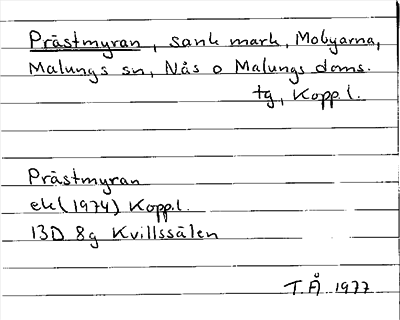 Prästmyran, sank mark, Mobyarna,
Malungs sn, Nås o Malungs doms.
tg, Kopp.l.
Prästmyran
ek (1974) Kopp.l.
13D 8g Kvillssälen
T.Å 1977